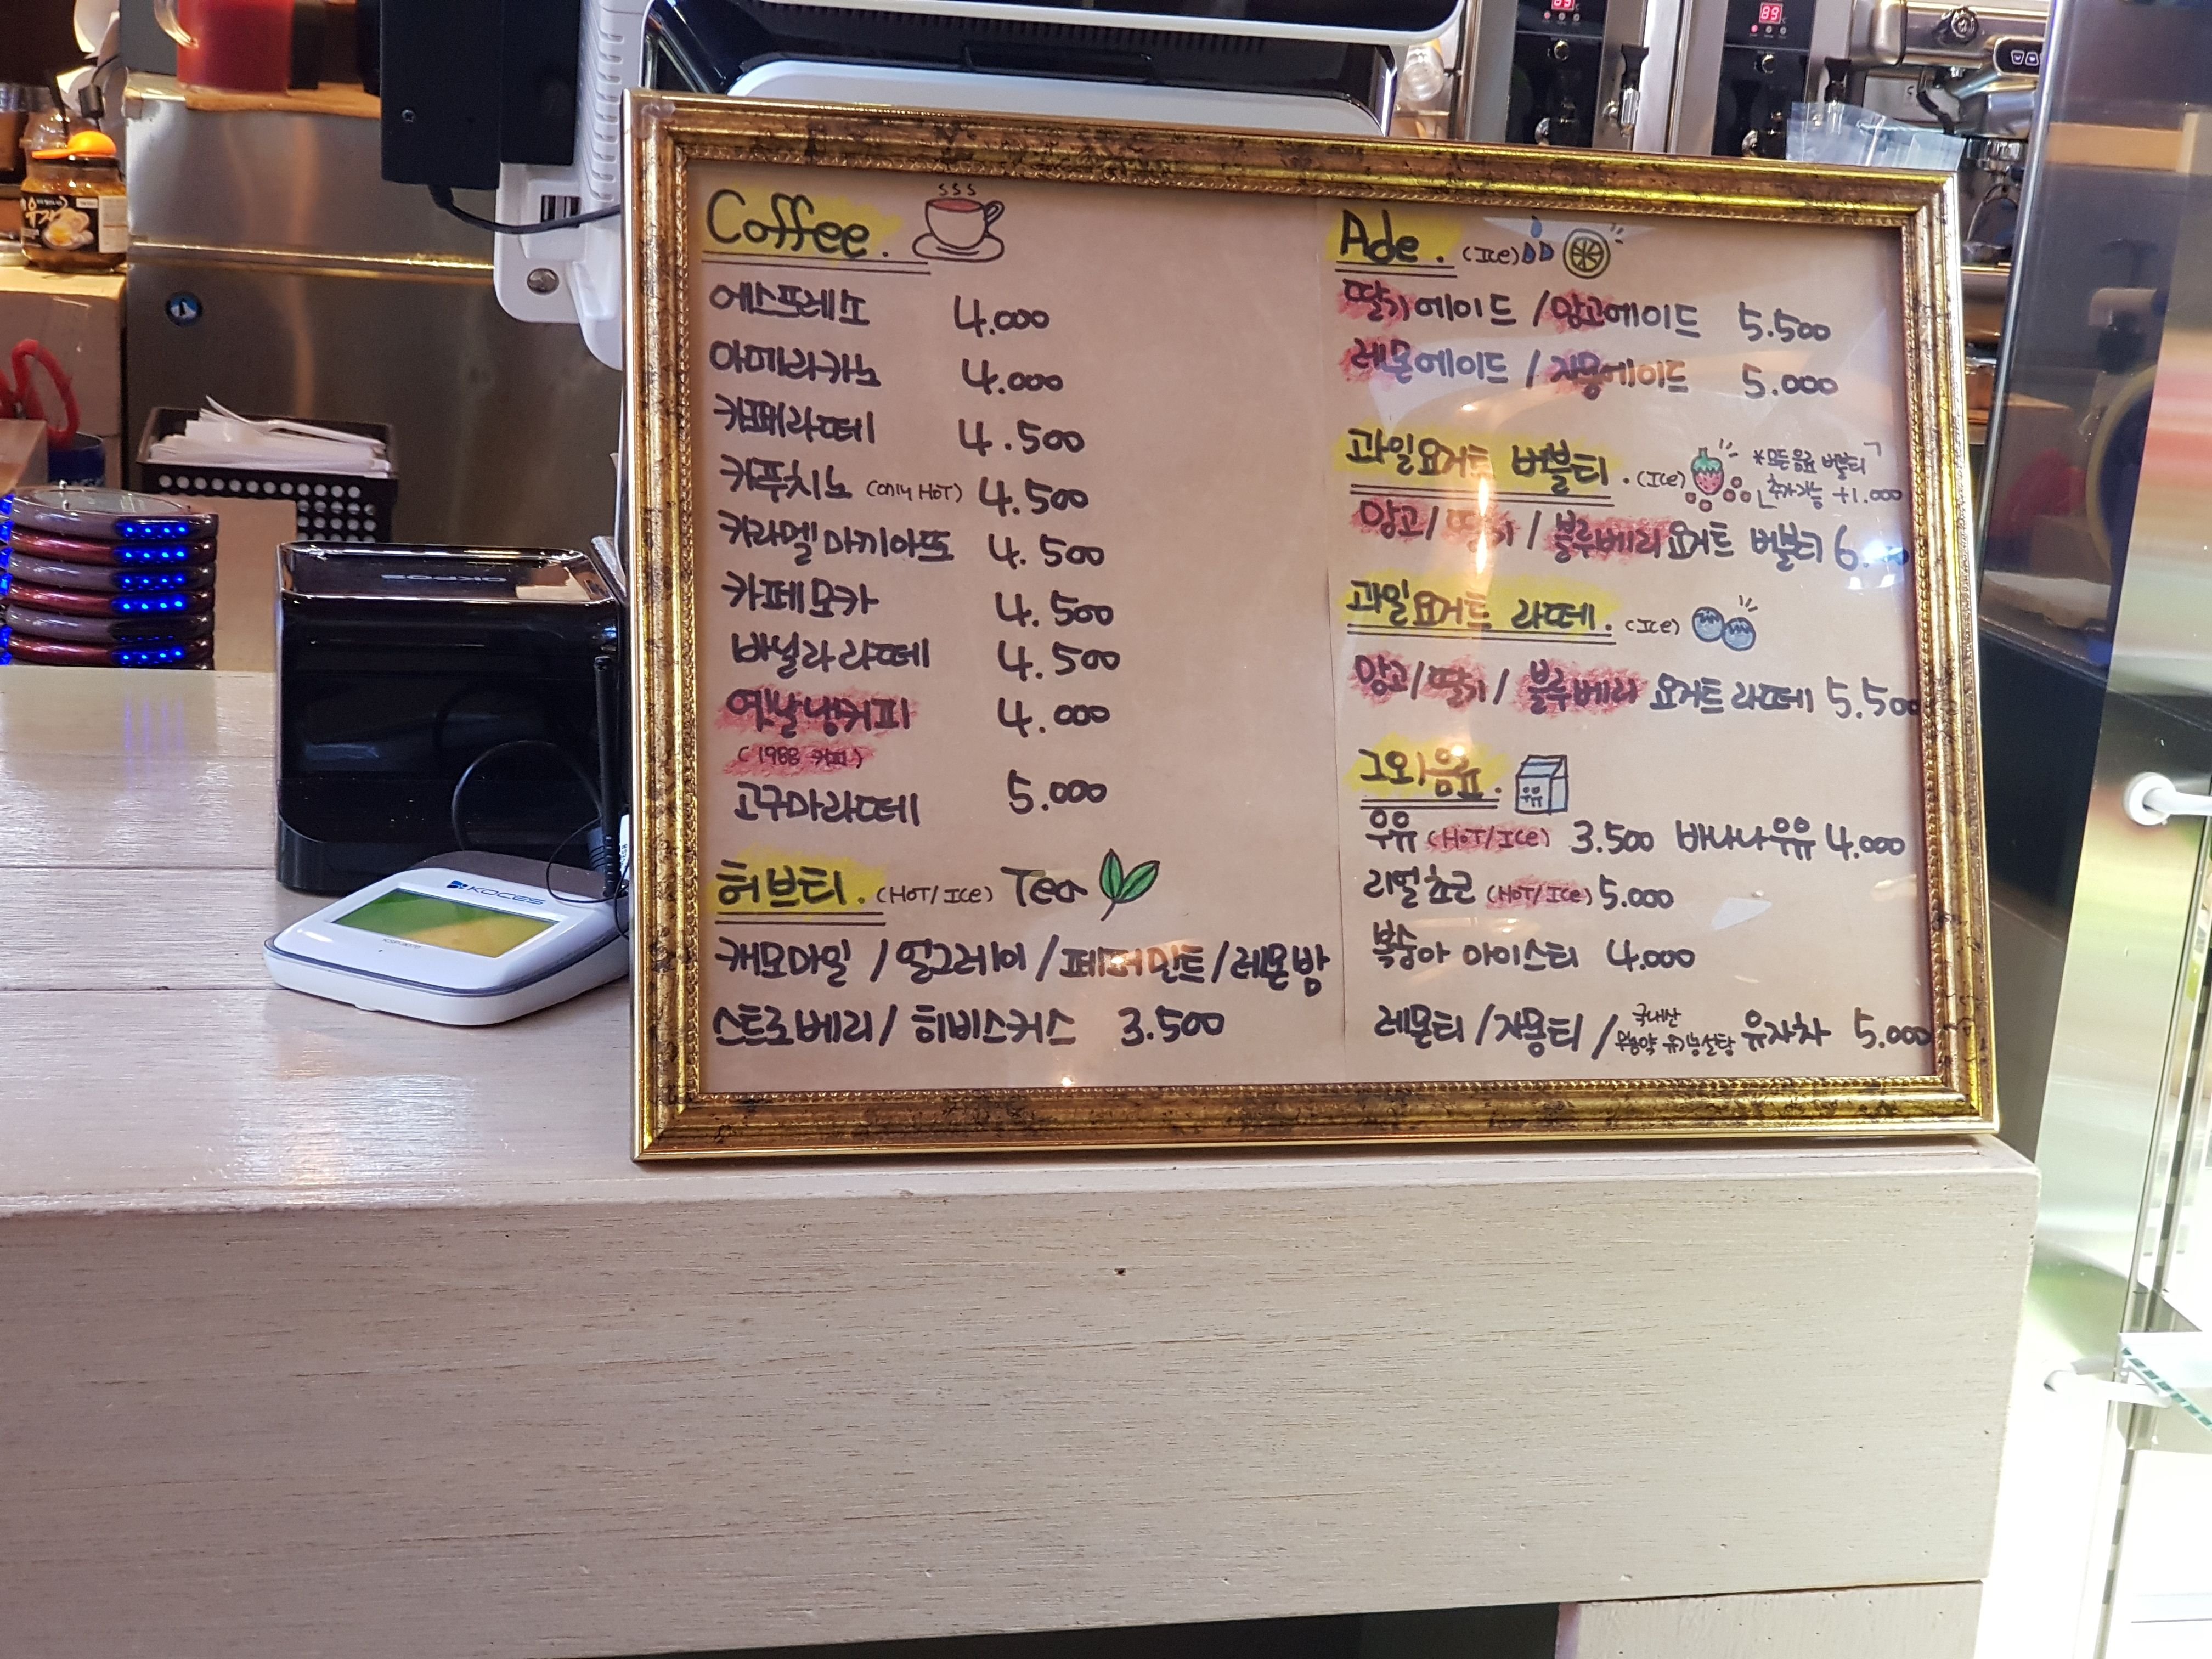 Coffee.
에스프레소 4.000
아메리카노 4.000
카페라떼 4.500
카푸치노 (only HOT) 4.500
카라멜마끼아또 4.500
카페모카 4.500
바닐라라떼 4.500
옛날냉커피 4.000
(1988 커피)
고구마라떼 5.000
허브티. (HOT/ICe) Tea
캐모마일 / 얼그레이 / 페퍼민트 / 레몬밤
스트로베리 / 히비스커스 3.500
Ade. (ICe)
딸기에이드 / 망고에이드 5.500
레몬에이드 / 자몽에이드 5.000
과일요거트 버블티. (ICe)
*모든음료 버블티
추가가능 +1.000
망고 / 딸기 / 블루베리 요거트 버블티 6.
과일요거트 라떼. (ICe)
망고 / 딸기 / 블루베리 요거트 라떼 5.500
그외음료.
우유
우유 (HOT/ICe) 3.500 바나나우유 4.000
리얼초코 (HOT/ICe) 5.000
복숭아 아이스티 4.000
레몬티 / 자몽티 / 국내산 무농약 유기농설탕 유자차 5.000
KOCES
OKPOS
89
89